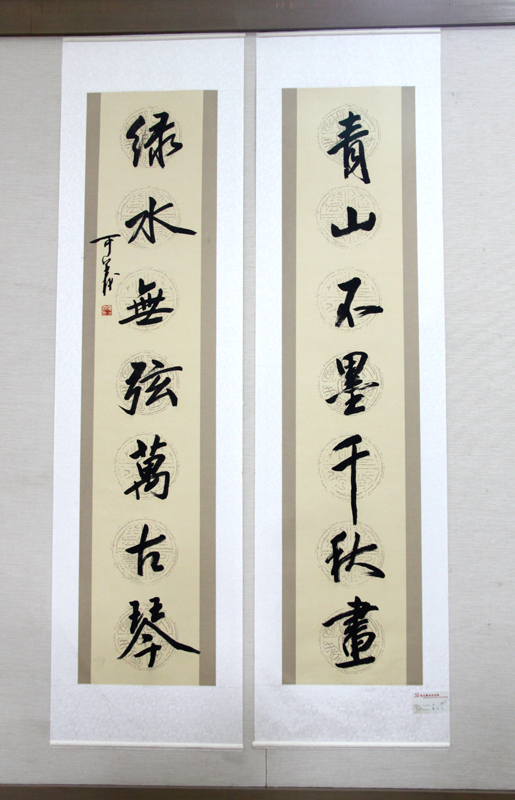 青山不墨千秋畫
绿水無弦萬古琴